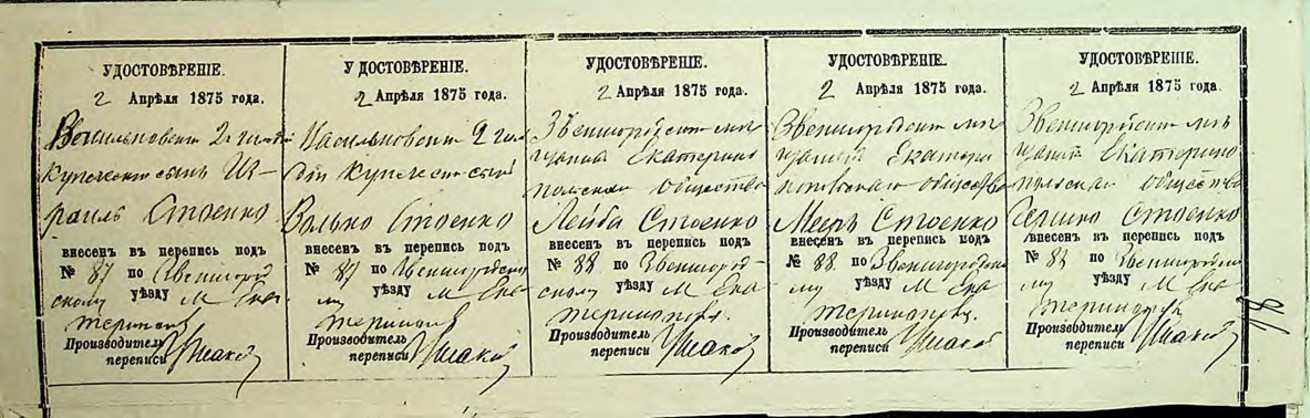 УДОСТОВѢРЕНІЕ.
2 Апрѣля 1875 года.
Васильковскій 2й гильдіи
купеческій сынъ Из-
раиль Стоенко
внесенъ въ перепись подъ
№ 87 по Звенигород
скому уѣзду М Ека
теринополь
Производитель
переписи
УДОСТОВѢРЕНІЕ.
2 Апрѣля 1875 года.
Васильковскій 2 гиль
діи купеческій сынъ
Волько Стоенко
внесенъ въ перепись подъ
№ 87 по Звенигородско
му уѣзду М Ека
теринополь
Производитель
переписи
УДОСТОВѢРЕНІЕ.
2 Апрѣля 1875 года.
Звенигородскій мѣ
щанинъ Екатерино
польскаго общества
Лейба Стоенко
внесенъ въ перепись подъ
№ 88 по Звенигород-
скому уѣзду М Ека
теринополь.
Производитель
переписи
УДОСТОВѢРЕНІЕ.
2 Апрѣля 1875 года.
Звенигородскій мѣ
щанинъ Екатери
нопольскаго общества
Мееръ Стоенко
внесенъ въ перепись подъ
№ 88 по Звенигородско
му уѣзду М Ека
теринополь.
Производитель
переписи
УДОСТОВѢРЕНІЕ.
2 Апрѣля 1875 года.
Звенигородскій мѣ
щанинъ Екатерино
польскаго общества
Гершко Стоенко
внесенъ въ перепись подъ
№ 88 по Звенигородско
му уѣзду М Ека
теринополь
Производитель
переписи